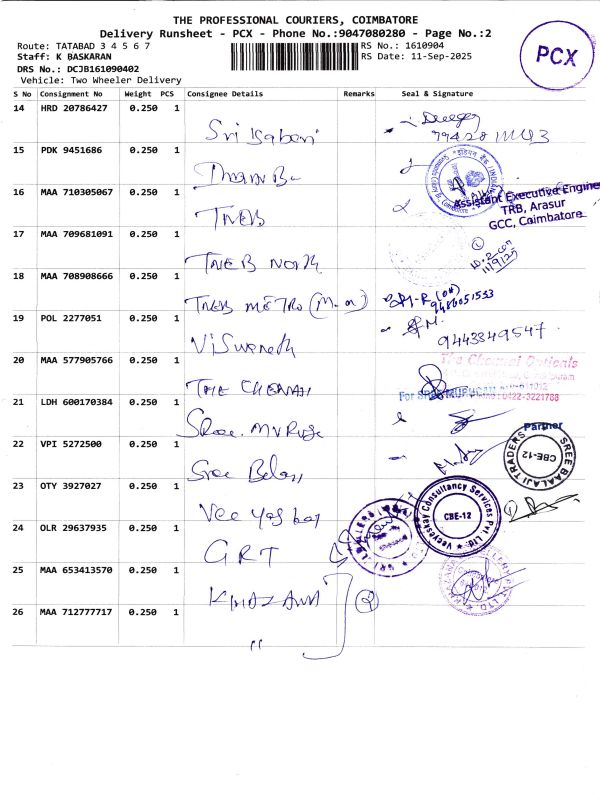 THE PROFESSIONAL COURIERS, COIMBATORE
Delivery Runsheet - PCX - Phone No.:9047080280 - Page No.:2
Route: TATABAD 3 4 5 6 7
RS No.: 1610904
Staff: K BASKARAN
RS Date: 11-Sep-2025
DRS No.: DCJB161090402
Vehicle: Two Wheeler Delivery
PCX
S No Consignment No Weight PCS Consignee Details Remarks Seal & Signature
14 HRD 20786427 0.250 1
Sri
15 PDK 9451686 0.250 1
16 MAA 710305067 0.250 1
TNEB
Assistant Executive Engineer
TRB, Arasur
GCC, Coimbatore
17 MAA 709681091 0.250 1
TNEB North
11/9/25
18 MAA 708908666 0.250 1
TNEB METRO
9486051533
19 POL 2277051 0.250 1
Viswanath
9443349547
20 MAA 577905766 0.250 1
THE CHENNAI
The Chennai Opticals
21 LDH 600170384 0.250 1
Sree
For SREE MURUGAN
0422-3221788
Partner
22 VPI 5272500 0.250 1
Sree Balaji
SREE BAALAJI TRADERS
CBE-12
23 OTY 3927027 0.250 1
Vee
Veeyeskay Consultancy Services Pvt Ltd
CBE-12
24 OLR 29637935 0.250 1
GRT
25 MAA 653413570 0.250 1
KHAZANA
2
26 MAA 712777717 0.250 1
"